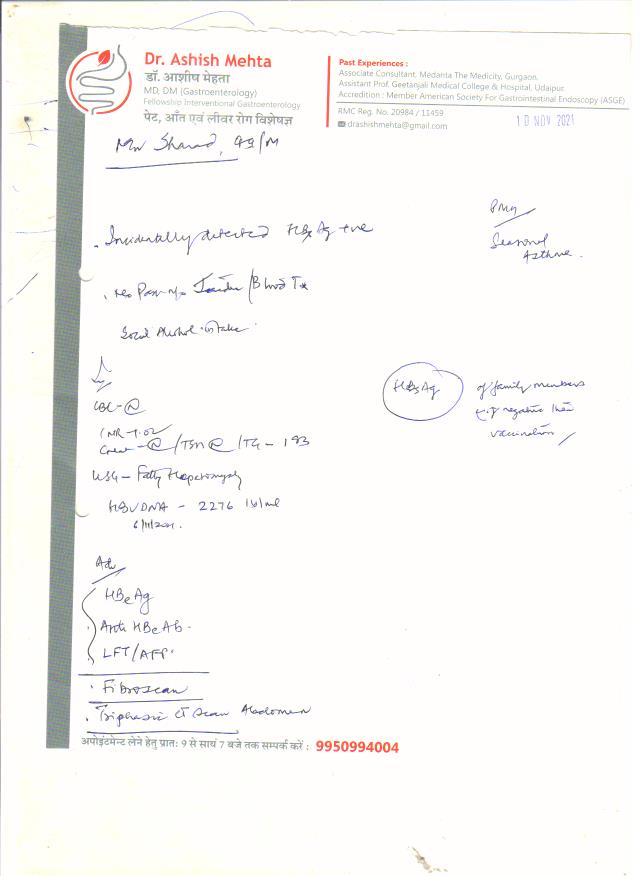 Dr. Ashish Mehta
डॉ. आशीष मेहता
MD, DM (Gastroenterology)
Fellowship Interventional Gastroenterology
पेट, आँत एवं लीवर रोग विशेषज्ञ
Past Experiences :
Associate Consultant, Medanta The Medicity, Gurgaon.
Assistant Prof. Geetanjali Medical College & Hospital, Udaipur.
Accreditation : Member American Society For Gastrointestinal Endoscopy (ASGE)
RMC Reg. No. 20984 / 11459
drashishmehta@gmail.com
10 NOV 2021
Sharad, 49/M
. Incidentally detected HBsAg +ve
Seasonal
Asthma.
. No /Blood Tx
Social Alcohol intake
HBsAg
of family members
if negative then
vaccination
CBC - N
INR - 1.02
Creat - N / TSH N / TG - 193
USG - Fatty Hepatomegaly
HBVDNA - 2276 IU/ml
6/11/2021.
Adv
HBeAg
Anti HBeAb
LFT/AFP
. Fibroscan
. Triphasic CT scan Abdomen
अपोइंटमेन्ट लेने हेतु प्रातः 9 से सायं 7 बजे तक सम्पर्क करें : 9950994004